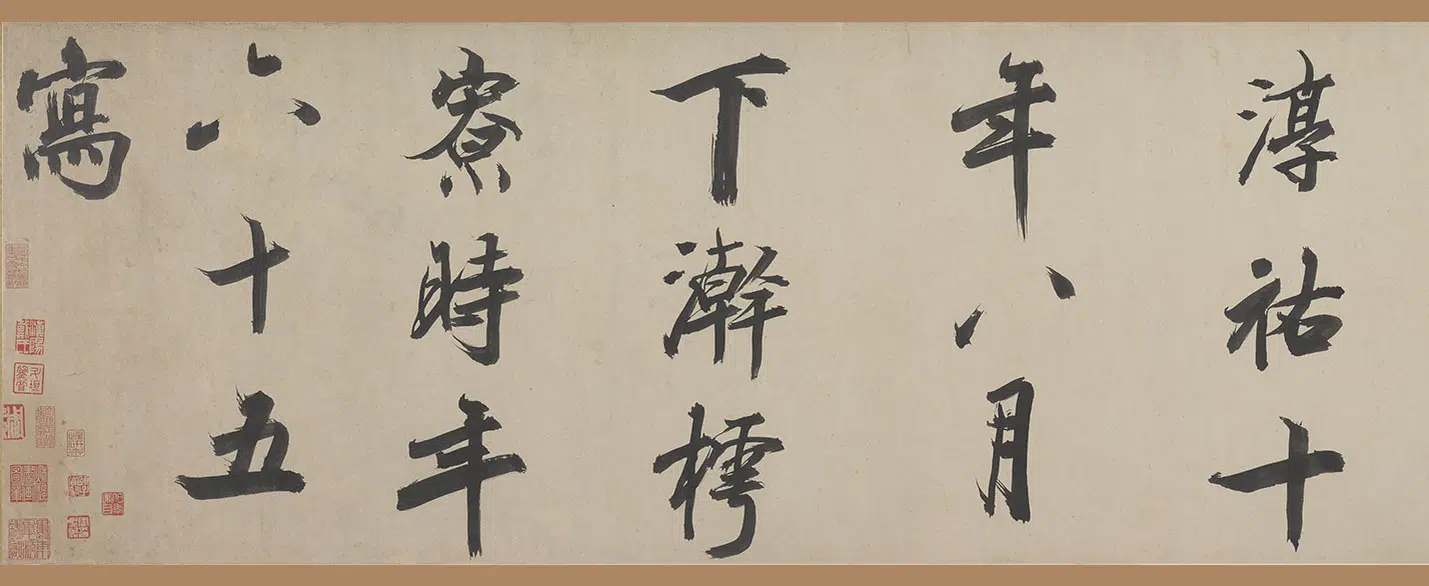 淳祐十
年八月
下澣樗
寮時年
六十五
寫